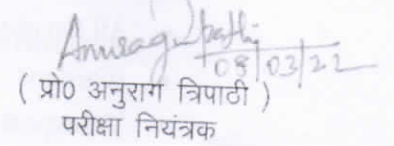 Anuragtripathi
08/03/22
( प्रो0 अनुराग त्रिपाठी )
परीक्षा नियंत्रक